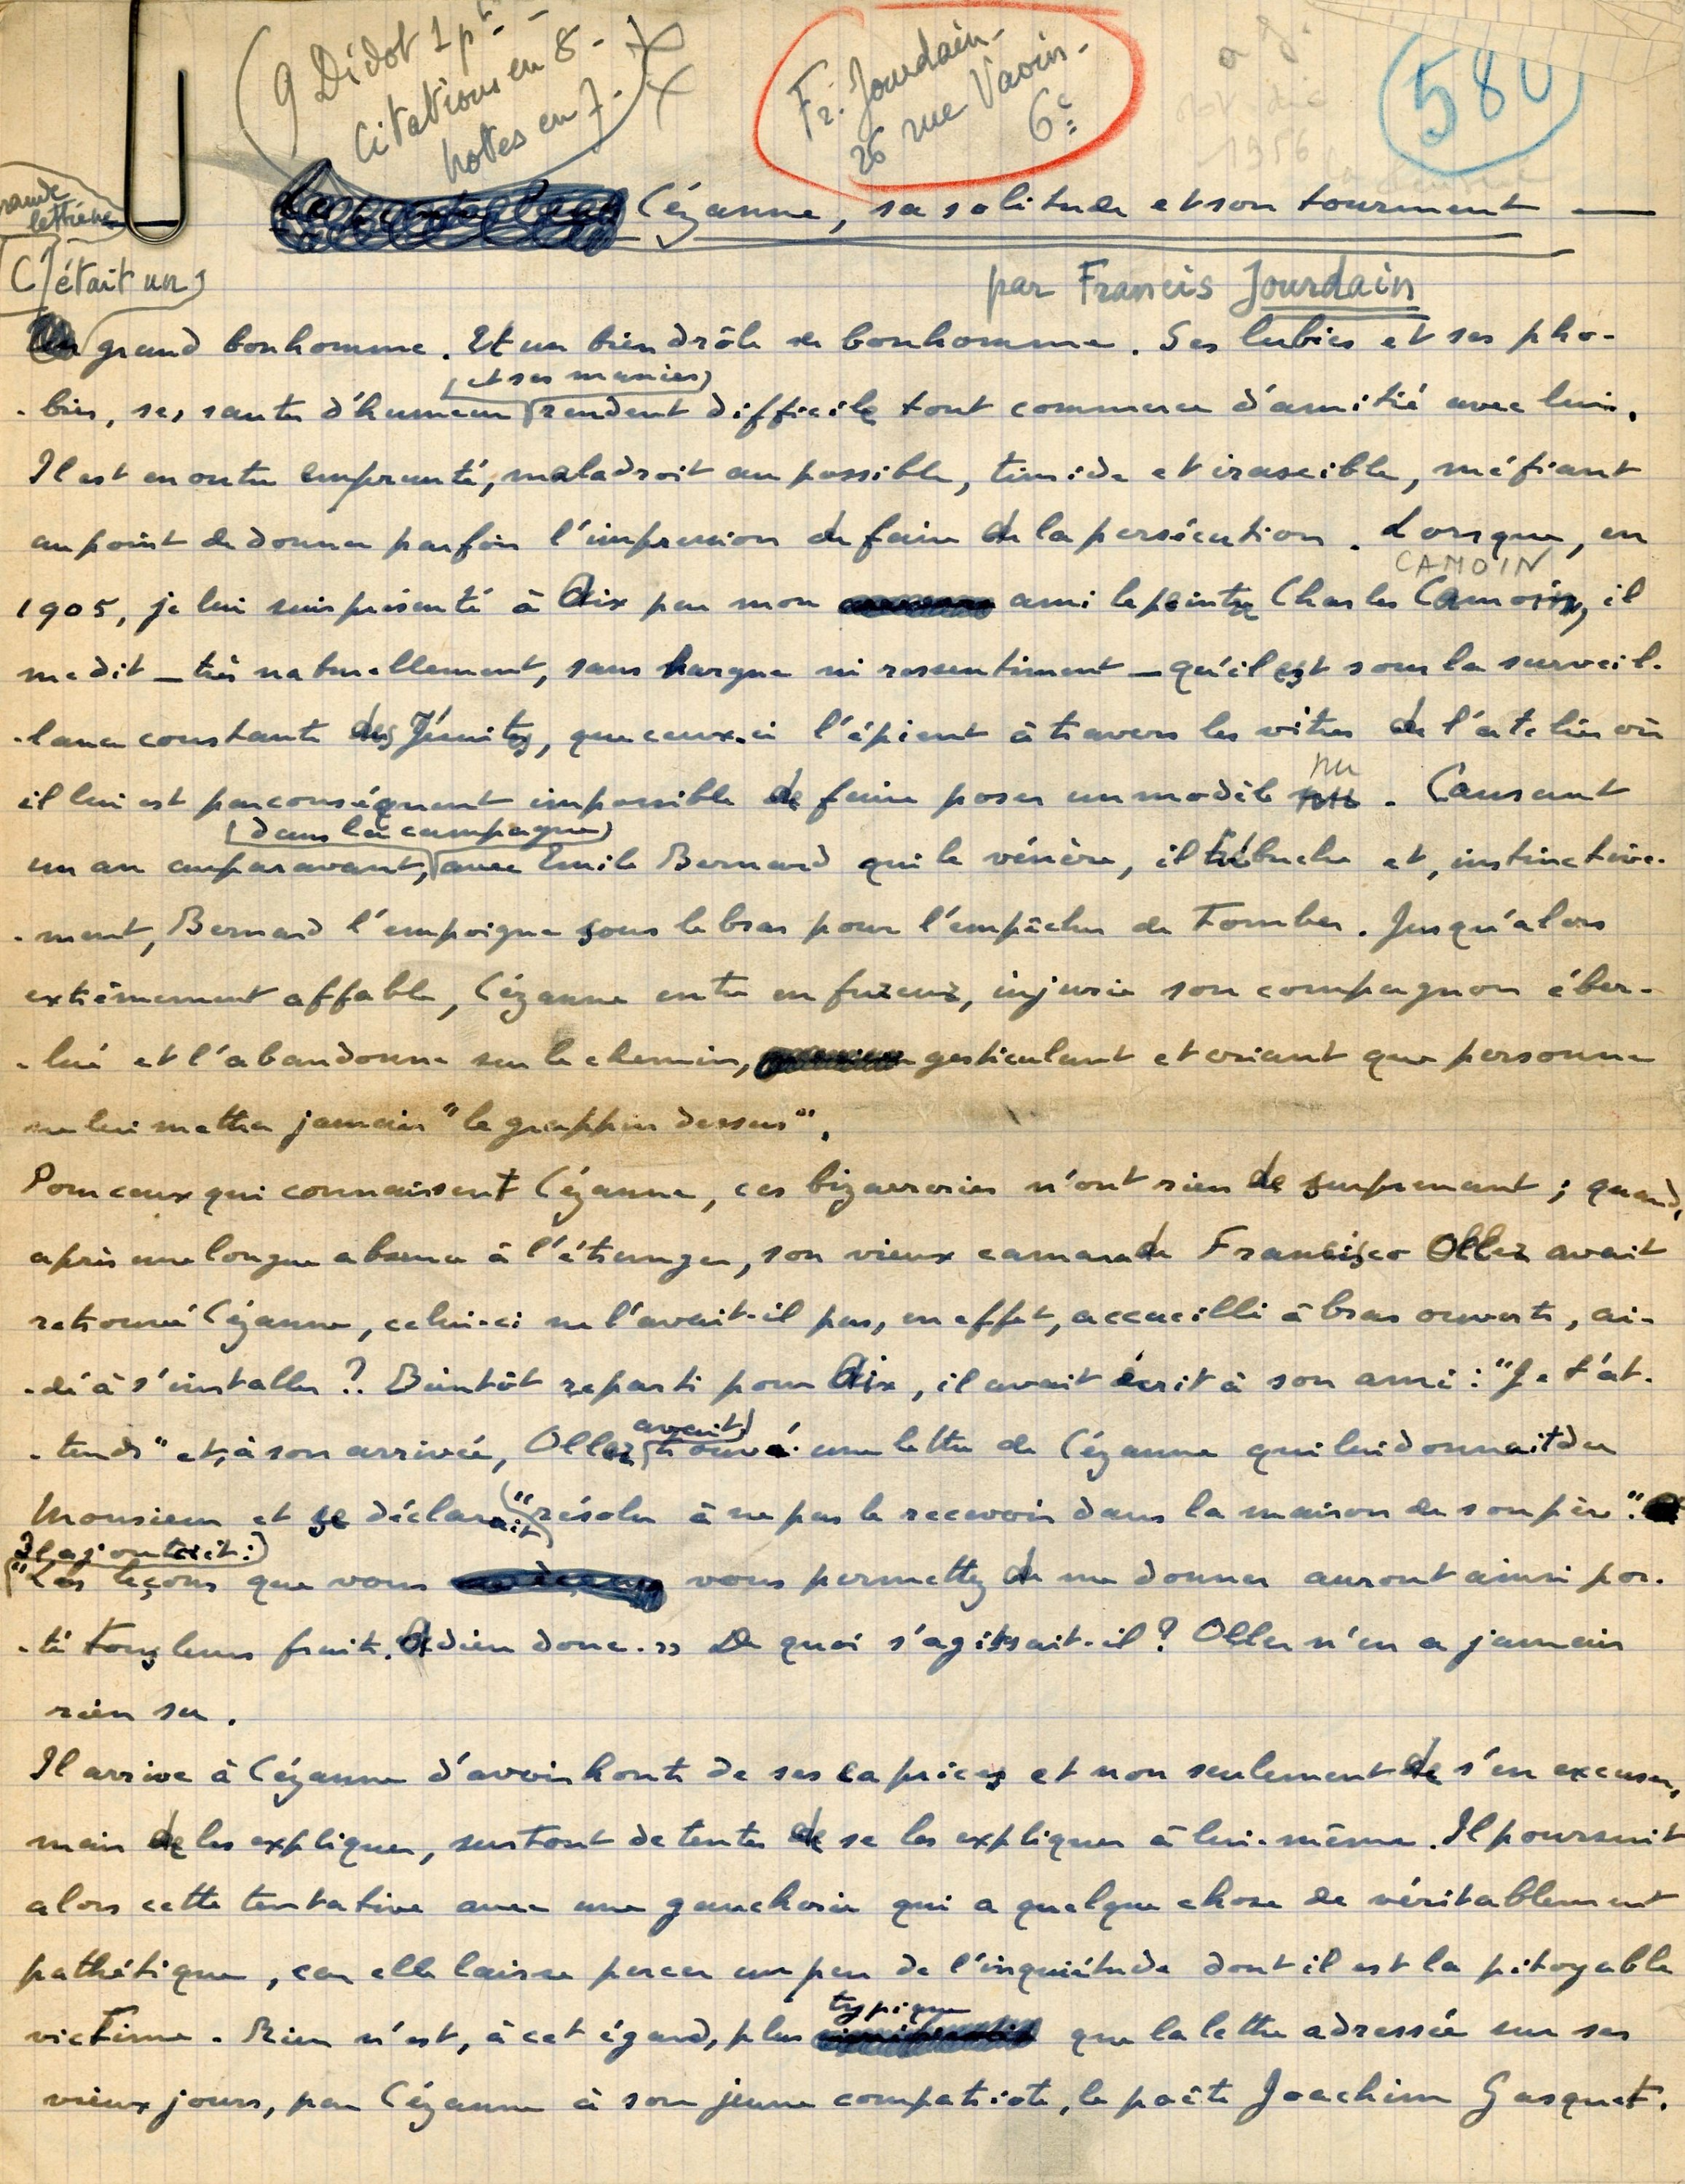 9 Didot 1 pt-
citations en 8-
notes en 7-
Fr. Jourdain-
26 rue Vavin-
6e
580
1956
lettrine
Cézanne, sa solitude et son tourment —
C'était un
par Francis Jourdain
grand bonhomme. Et un bien drôle de bonhomme. Ses lubies et ses pho-
-bies, ses sautes d'humeur et ses manies rendent difficile tout commerce d'amitié avec lui.
Il est en outre emprunté, maladroit au possible, timide et irascible, méfiant
au point de donner parfois l'impression de faire de la persécution. Lorsque, en
CAMOIN
1905, je lui suis présenté à Aix par mon ami le peintre Charles Camoin, il
me dit — très naturellement, sans hargne ni ressentiment — qu'il est sous la surveil-
-lance constante des Jésuites, que ceux-ci l'épient à travers les vitres de l'atelier où
il lui est par conséquent impossible de faire poser un modèle nu. Causant
un an auparavant, dans la campagne avec Emile Bernard qui le vénère, il trébuche et, instinctive-
-ment, Bernard l'empoigne sous le bras pour l'empêcher de tomber. Jusqu'alors
extrêmement affable, Cézanne entre en fureur, injurie son compagnon éber-
-lué et l'abandonne sur le chemin, gesticulant et criant que personne
ne lui mettra jamais "le grappin dessus".
Pour ceux qui connaissent Cézanne, ces bizarreries n'ont rien de surprenant ; quand,
après une longue absence à l'étranger, son vieux camarade Francisco Oller avait
retrouvé Cézanne, celui-ci ne l'avait-il pas, en effet, accueilli à bras ouverts, ai-
-dé à s'installer ?. Bientôt reparti pour Aix, il avait écrit à son ami : "Je t'at-
-tends" et, à son arrivée, Oller avait trouvé une lettre de Cézanne qui lui donnait du
Monsieur et se déclarait "résolu à ne pas le recevoir dans la maison de son père".
Il ajoutait :
"Les leçons que vous vous permettez de me donner auront ainsi por-
-té tous leurs fruits. Adieu donc. » De quoi s'agissait-il ? Oller n'en a jamais
rien su.
Il arrive à Cézanne d'avoir honte de ses caprices et non seulement de s'en excuser,
mais de les expliquer, surtout de tenter de se les expliquer à lui-même. Il poursuit
alors cette tentative avec une gaucherie qui a quelque chose de véritablement
pathétique, car elle laisse percer un peu de l'inquiétude dont il est la pitoyable
victime. Rien n'est, à cet égard, plus typique que la lettre adressée sur ses
vieux jours, par Cézanne à son jeune compatriote, le poète Joachim Gasquet.